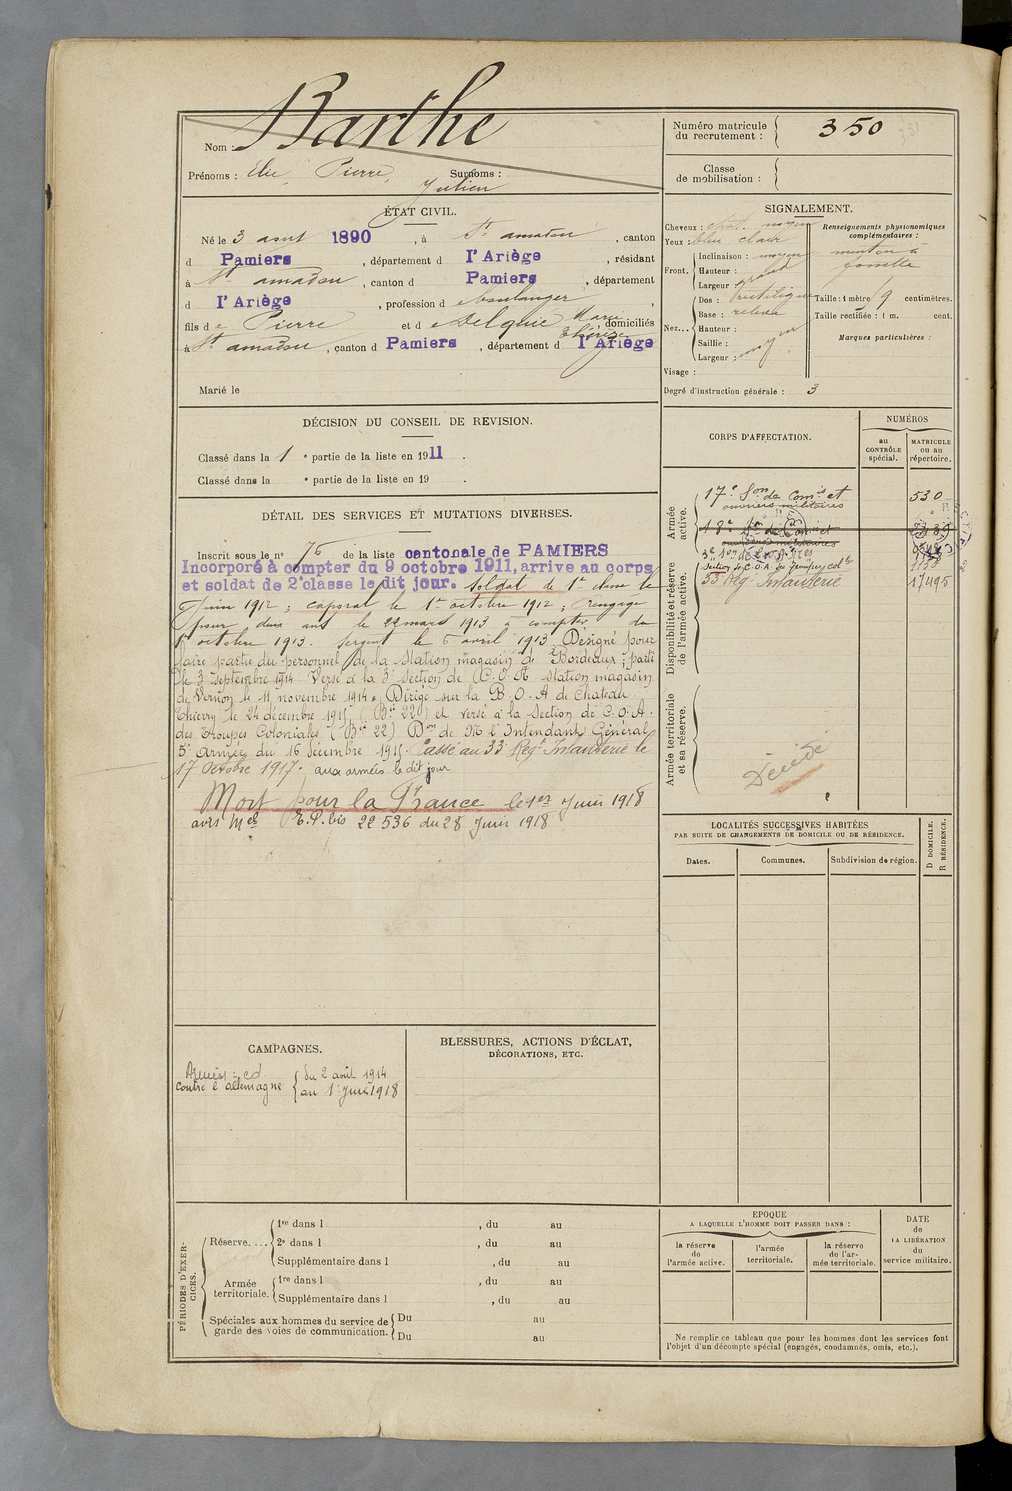 Nom : Barthe
Prénoms : Elie, Pierre, Julien Surnoms :
Numéro matricule du recrutement : 350
Classe de mobilisation :
ÉTAT CIVIL.
Né le 3 août 1890, à St amadou, canton
d Pamiers, département d l'Ariège, résidant
à St amadou, canton d Pamiers, département
d l'Ariège, profession de boulanger,
fils de Pierre et de Delquié Marie Thérèse domiciliés
à St amadou, canton d Pamiers, département d l'Ariège
Marié le
SIGNALEMENT.
Cheveux : chat. moyen
Yeux : bleu clair
Front. Inclinaison : moyen
Hauteur : grand
Largeur :
Nez... Dos : rectiligne
Base : relevée
Hauteur :
Saillie : moyen
Largeur :
Visage :
Renseignements physionomiques complémentaires :
menton à
fossette
Taille : 1 mètre 9 centimètres.
Taille rectifiée : 1 m. cent.
Marques particulières :
Degré d'instruction générale : 3
DÉCISION DU CONSEIL DE REVISION.
Classé dans la 1e partie de la liste en 1911.
Classé dans la e partie de la liste en 19 .
DÉTAIL DES SERVICES ET MUTATIONS DIVERSES.
Inscrit sous le n° 76 de la liste cantonale de PAMIERS
Incorporé à compter du 9 octobre 1911, arrive au corps
et soldat de 2e classe le dit jour. Soldat de 1re classe le
Juin 1912 ; caporal le 1er octobre 1912 ; Rengagé
pour deux ans le 22 mars 1913 à compter du
1er octobre 1913. Sergent le 6 avril 1913. Désigné pour
faire partie du personnel de la Station magasin de Bordeaux ; parti
le 3 Septembre 1914 Versé à la 3e Section de C.O.A station magasin
de Vernon le 11 novembre 1914. Dirigé sur la B.O.A de Chateau
Thierry le 24 décembre 1915 (Bin 220) et versé à la Section de C.O.A.
des Troupes Coloniales (Bin 22) Don de Mr l'Intendant Général
5e Armée du 16 décembre 1915. Passé au 33 Regt Infanterie le
17 Octobre 1917. aux armées le dit jour
Mort pour la France le 1er Juin 1918
avis Mel E.P. bis 22536 du 28 Juin 1918
CORPS D'AFFECTATION.
NUMÉROS
au CONTRÔLE spécial.
MATRICULE ou au répertoire.
Armée active.
17e Son de Comis et ouvriers militaires 530
18e Son de Comis et ouvriers militaires
Disponibilité et réserve de l'armée active.
Section de C.O.A. des Troupes coles
33 Rég. Infanterie 17495
Armée territoriale et sa réserve.
Décédé
LOCALITÉS SUCCESSIVES HABITÉES
PAR SUITE DE CHANGEMENTS DE DOMICILE OU DE RÉSIDENCE.
Dates.
Communes.
Subdivision de région.
D DOMICILE.
R RÉSIDENCE.
CAMPAGNES.
contre l'allemagne
du 2 août 1914
au 1er Juin 1918
BLESSURES, ACTIONS D'ÉCLAT,
DÉCORATIONS, ETC.
PÉRIODES D'EXERCICES.
Réserve.... 1re dans l , du au
2e dans l , du au
Supplémentaire dans l , du au
Armée territoriale. 1re dans l , du au
Supplémentaire dans l , du au
Spéciales aux hommes du service de garde des voies de communication. Du au
Du au
EPOQUE
A LAQUELLE L'HOMME DOIT PASSER DANS :
la réserve de l'armée active.
l'armée territoriale.
la réserve de l'armée territoriale.
DATE de LA LIBÉRATION du service militaire.
Ne remplir ce tableau que pour les hommes dont les services font
l'objet d'un décompte spécial (engagés, condamnés, omis, etc.).